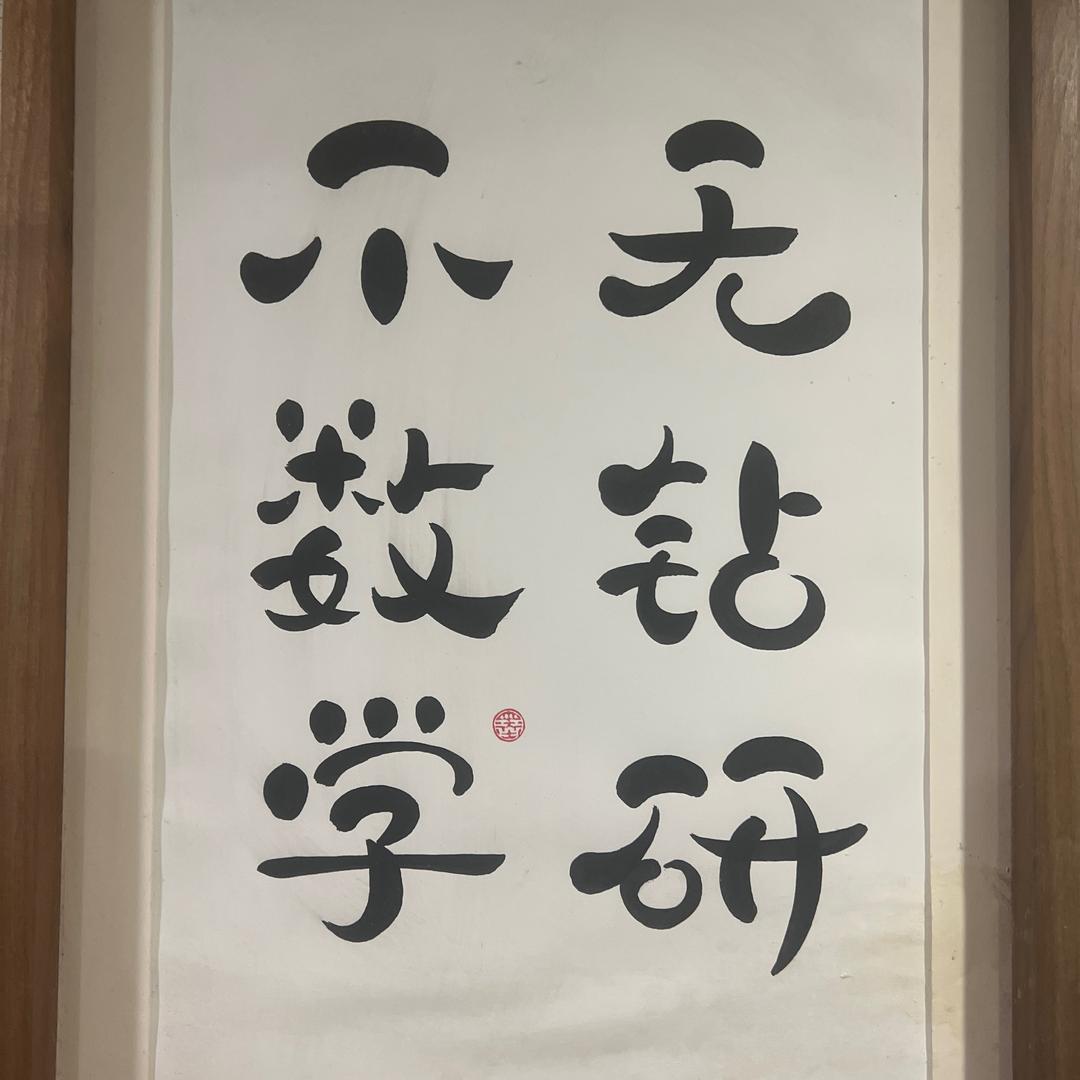 无钻研
不数学